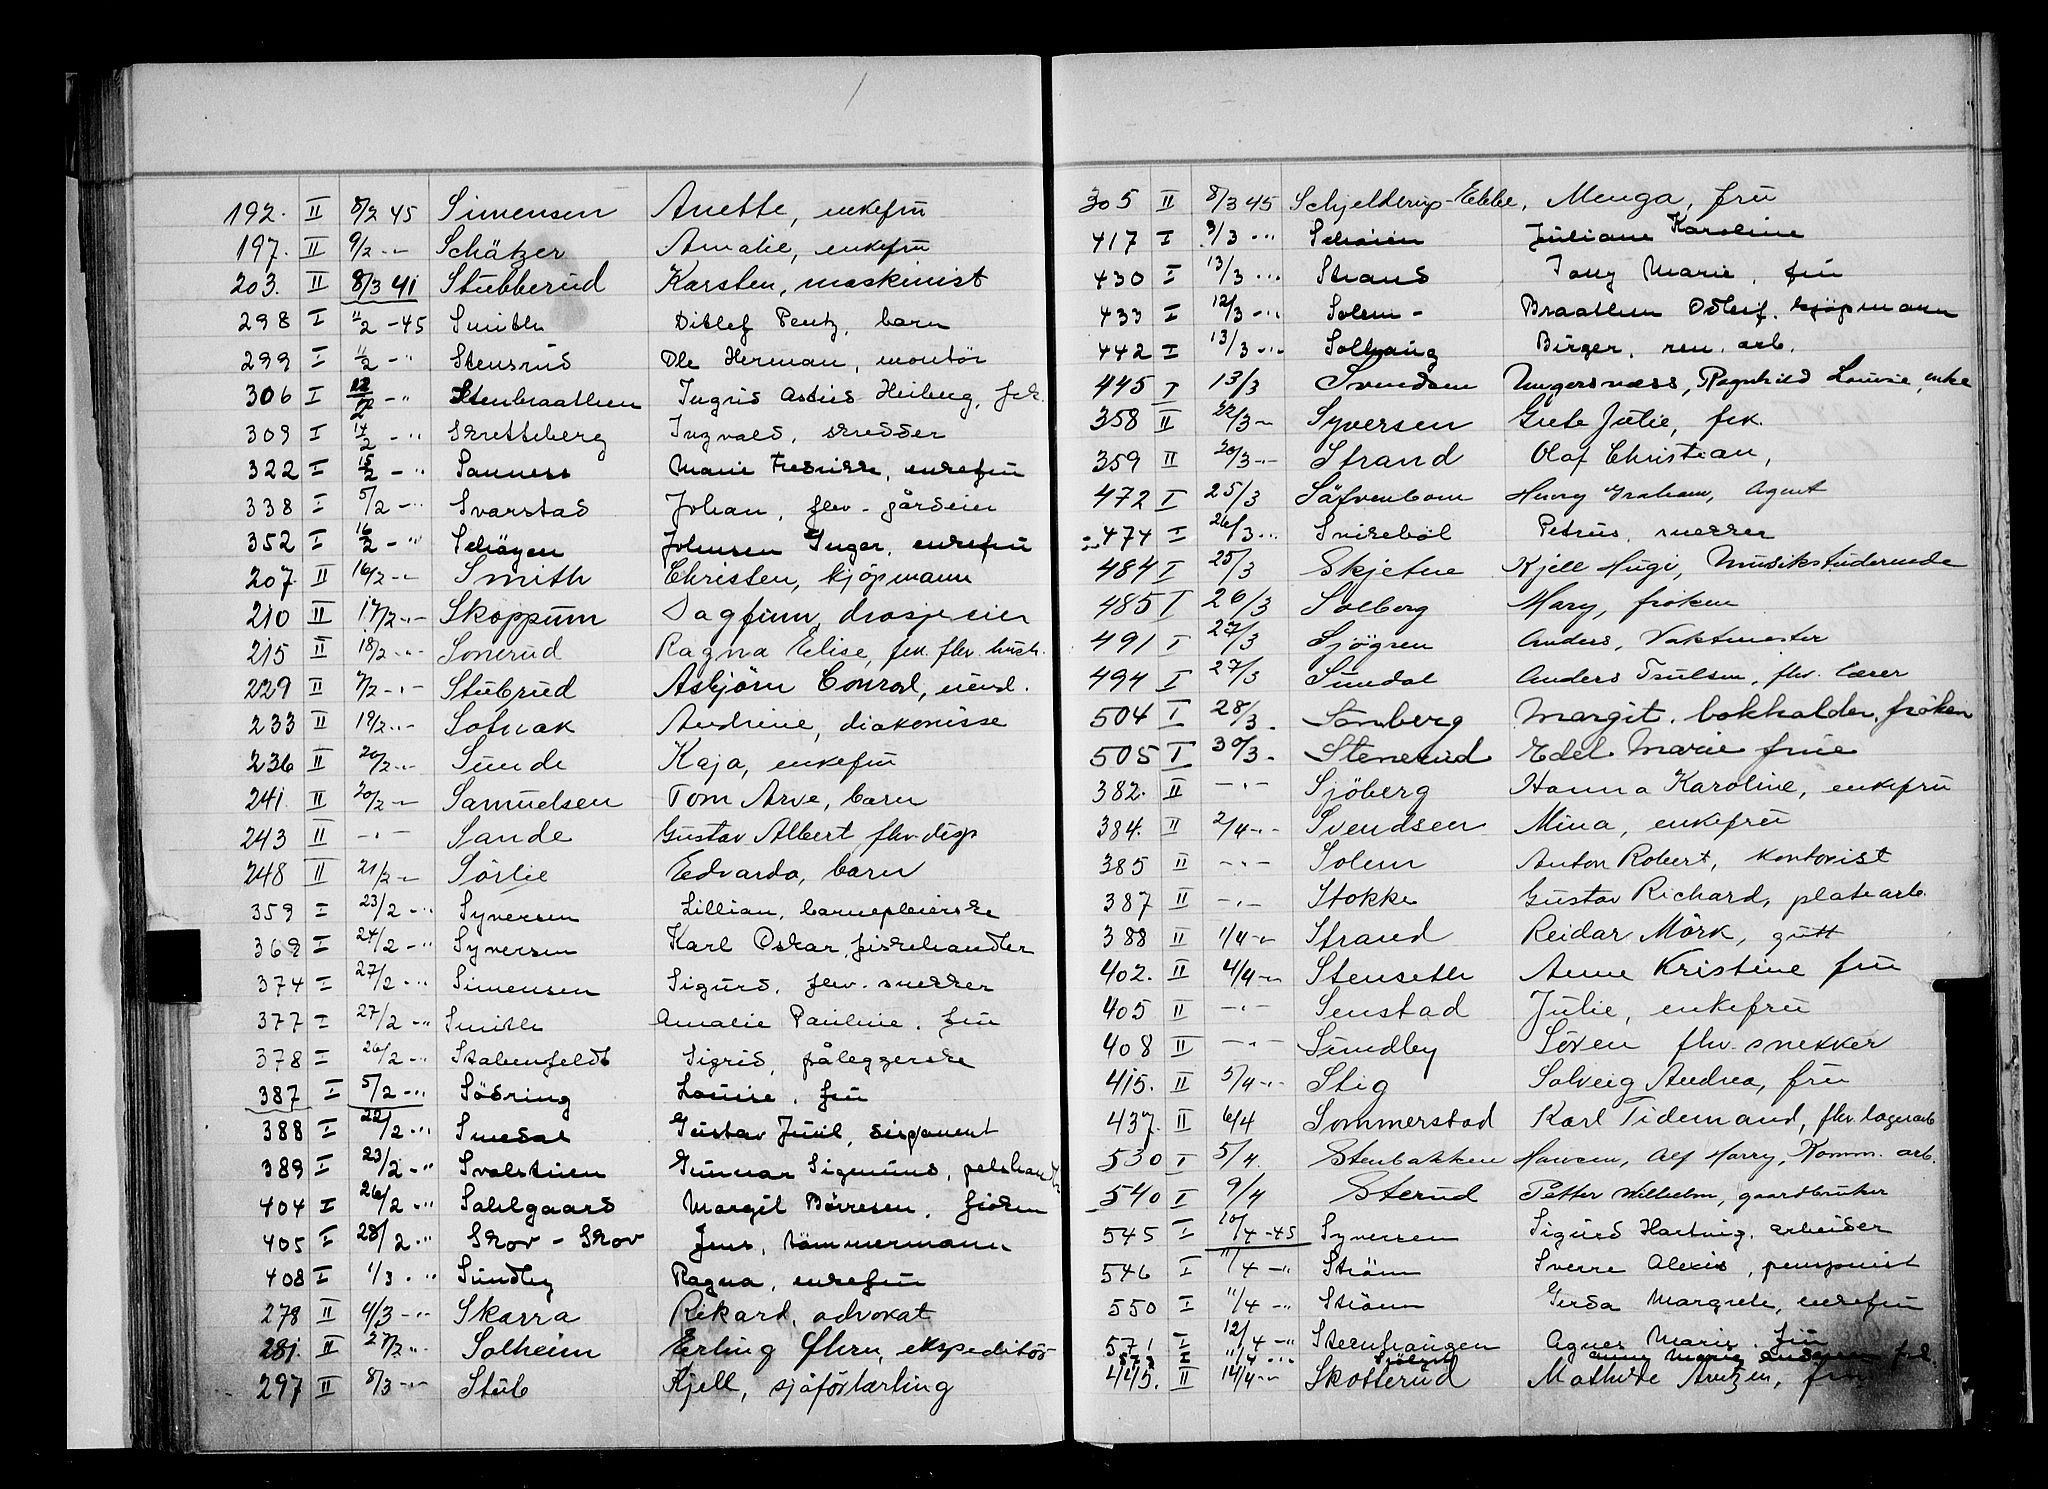 192. II 8/2 45 Simensen Anette, enkefru
197. II 9/2 -"- Schätzer Amalie, enkefru
203. II 8/3 41 Stubberud Karsten, maskinist
298 I 11/2 -45 Smith Ditlef Pentz, barn
299 I 11/2 -" Stensrud Ole Herman, montör
306 I 12/2 -" Stenbraathen Ingrid Astrid Heiberg, frk.
309 I 14/2 -" Skretteberg Ingvald, skredder
322 I 15/2 -" Sanness Marie Fredrikke, enkefru
338 I 5/2 -" Svarstad Johan, fhv. gårdeier
352 I 16/2 -" Schöyen Johnsen Inger, enkefru
207. II 16/2 -"- Smith Christen, kjöpmann
210 II 17/2 -"- Skoppum Dagfinn, drosjeeier
215 II 18/2 -"- Sonerud Ragna Elise, frk. fhv. hush.
229 II 7/2 -"- Stubrud Asbjörn Conrad,
233 II 19/2 -"- Sotnak Andrine, diakonisse
236 II 20/2 -"- Sunde Kaja, enkefru
241. II 20/2 -"- Samuelsen Tom Arve, barn
243 II -"- Sande Gustav Albert fhv. disp
248 II 21/2 -"- Sörlie Edvarda, barn
359 I 23/2 -" Syversen Lillian, barnepleierske
369 I 24/2 -" Syversen Karl Oskar, fiskehandler
374 I 27/2 -" Simensen Sigurd, fhv. snekker
377 I 27/2 -" Smith Amalie Pauline, fru
378 I 26/2 -" Stabenfeldt Sigrid, påleggerske
387 I 5/2 -" Södring Louise, fru
388 I 22/2 -" Smedal Gustav Juul, disponent
389 I 23/2 -" Svalstuen Gunnar Sigmund, pelshandl
404 I 26/2 -" Sahlgaard Margit Börresen, fröken
405 I 28/2 -" Skov - Skov Jens, tömmermann
408 I 1/3 -" Sundby Ragna, enkefru
278 II 4/3 -" Skarra Rikard, advokat
281. II 27/2 -" Solheim Erling Thrn, ekspeditör
297 II 8/3 -"- Stub Kjell, sjåförlærling
305 II 8/3 45 Schjelderup-Ebbe, Menga, fru
417 I 9/3 -" Schöien Juliane Karoline
430 I 13/3 -" Strand Tony Marie, fru
433 I 12/3 -" Solem - Braathen Odleif, kjöpmann
442 I 13/3 -" Solhaug Birger, ren. arb.
445 I 13/3 Svendsen Ungersness, Ragnhild Louise, enke
358 II 22/3 -"- Syversen Grete Julie, frk.
359 II 20/3 -"- Strand Olaf Christian,
472 I 25/3 Säfvenbom Henry Graham, Agent
474 I 26/3 -" Svireböl Petrus, snekker
484 I 25/3 Skjetne Kjell Hugi, Musikstuderende
485 I 26/3 Solberg Mary, fröken
491 I 27/3 Sjögren Anders, Vaktmester
494 I 27/3 Sundal Anders Trulsen, fhv. lærer
504 I 28/3. Sandberg Margit, bokholder, fröken
505 I 30/3. Stenerud Edel Marie frue
382. II -"- Sjöberg Hanna Karoline, enkefru
384. II 2/4 -"- Svendsen Mina, enkefru
385 II -"- Solem Anton Robert, kontorist
387 II -"- Stokke Gustav Richard, platearb.
388 II 1/4 -"- Strand Reidar Mörk, gutt
402. II 4/4 -"- Stenseth Anne Kristine fru
405 II -"- Senstad Julie, enkefru
408 II -"- Sundby Sören fhv. snekker
415. II 5/4 -"- Stig Solveig Andrea, fru
437. II 6/4 Sommerstad Karl Tidemand, fhv. lagerarb
530 I 5/4. Stenbakken Hansen, Alf Harry, Komm. arb.
540 I 9/4 Sterud Petter Wilhelm, gaardbruker
545 I 10/4 -45 Syversen Sigurd Hartvig, arbeider
546 I 11/4 -" Ström Sverre Alexis, pensjonist
550 I 11/4 -" Ström Gerda Margrete, enkefru
571 I 12/4 -" Sternhaugen Agnes Marie, fru
573 I 11/4 -" Sjölyst Anna Marie Andersen frk.
445. II 14/4 -"- Skotterud Mathilde Arntzen, fru